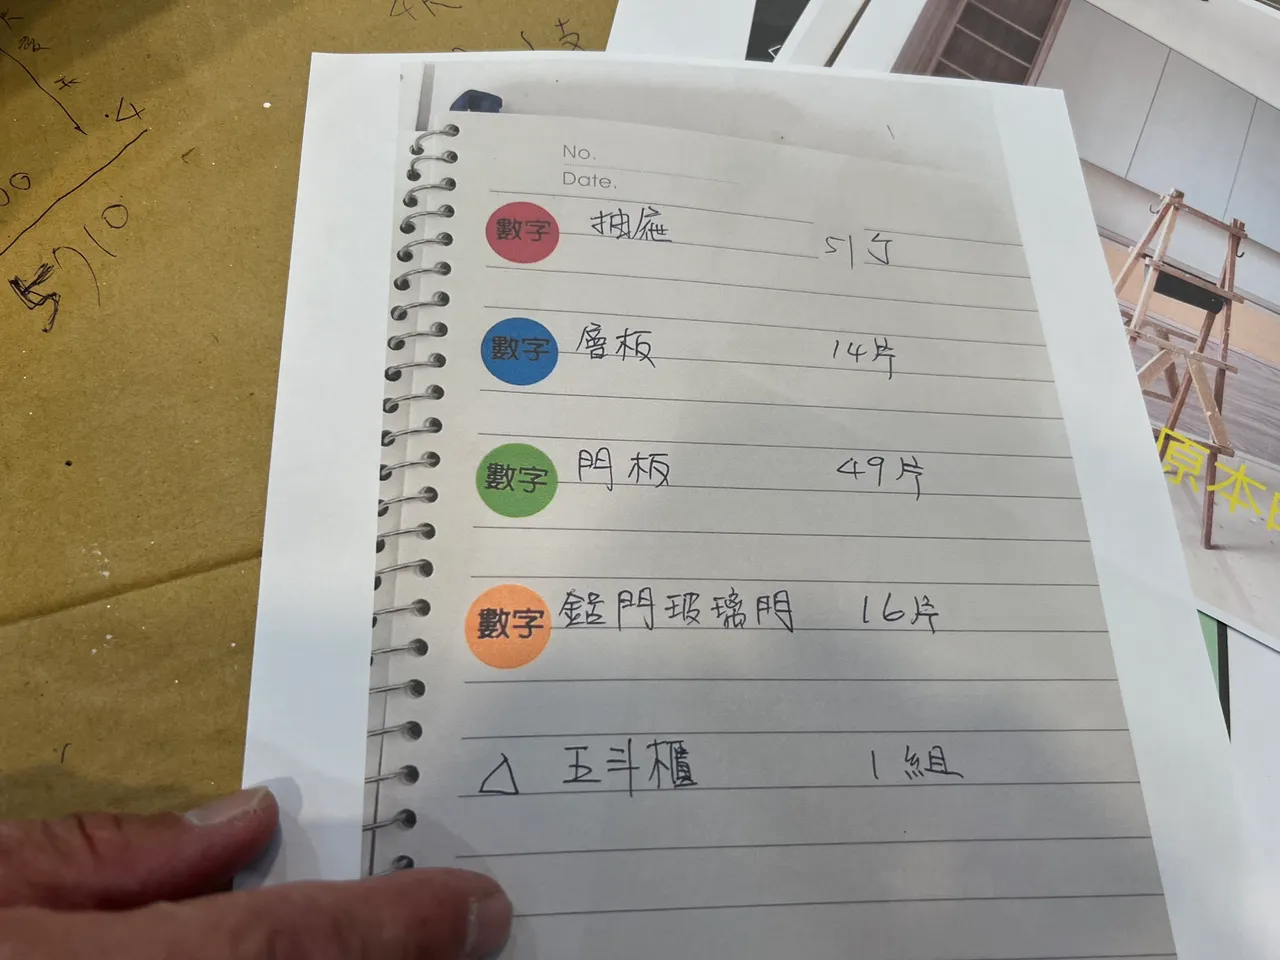 No.
Date.
數字 抽屜 51丁
數字 層板 14片
數字 門板 49片
數字 鋁門玻璃門 16片
△ 五斗櫃 1組
原本
5710